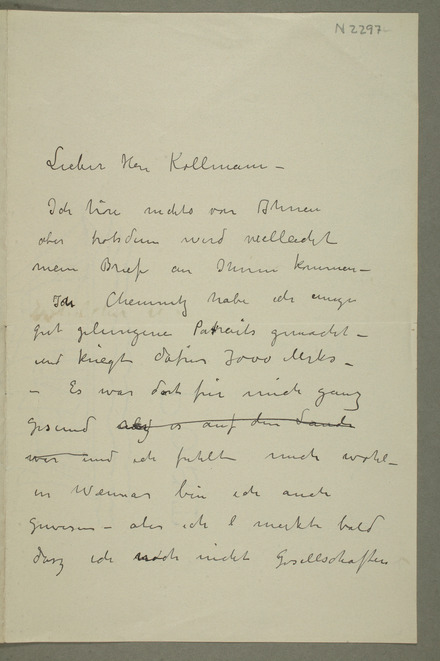 N 2297
Lieber Herr Kollmann –
Ich höre nichts von Ihnen
aber trotzdem wird vielleicht
mein Brief an Ihnen kommen –
In Chemnitz habe ich einige
gut gelungene Portraits gemacht –
und kriegte dafür 7000 Mrks –
– Es war dort für mich ganz
gesund es auf dem Lande
war und ich fühlte mich wohl –
in Weimar bin ich auch
gewesen – aber ich merkte bald
dasz ich noch nicht Gesellschaften